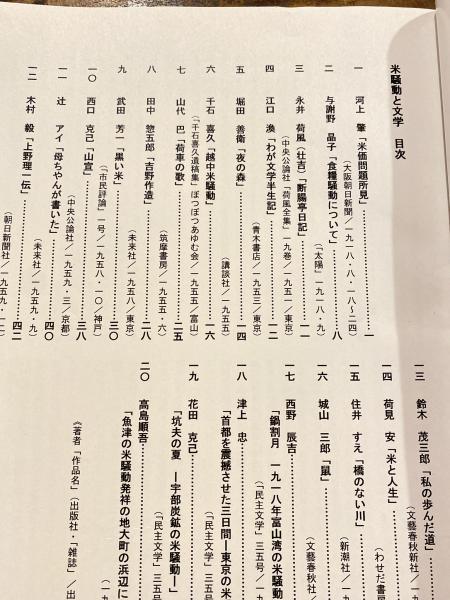 米騒動と文学　目次
一　河上　肇「米価問題所見」……一
（大阪朝日新聞／一九一八・八・一八～二四）
二　与謝野　晶子「食糧騒動について」……八
（「太陽」一九一八・九）
三　永井　荷風（壮吉）「断腸亭日記」……一一
（中央公論社「荷風全集」一九巻／一九五一／東京）
四　江口　渙「わが文学半生記」……一二
（青木書店／一九五三／東京）
五　堀田　善衛「夜の森」……一四
（講談社／一九五五）
六　千石　喜久「越中米騒動」……一六
（「千石喜久遺稿集」ぽつぽつあゆむ会／一九五五／富山）
七　山代　巴「荷車の歌」……二五
（筑摩書房／一九五五・六）
八　田中　惣五郎「吉野作造」……二八
（未来社／一九五八／東京）
九　武田　芳一「黒い米」……三〇
（「市民評論」一号／一九五八・一〇／神戸）
一〇　西口　克己「山宣」……三八
（中央公論社／一九五九・三／京都）
一一　辻　アイ「母ちやんが書いた」……四〇
（未来社／一九五九・九）
一二　木村　毅「上野理一伝」……四二
（朝日新聞社／一九五九・一二
一三　鈴木　茂三郎「私の歩んだ道」
（文藝春秋新社／一
一四　荷見　安「米と人生」
（わせだ書房
一五　住井　すえ「橋のない川」
（新潮社／一
一六　城山　三郎「鼠」
（文藝春秋社／
一七　西野　辰吉
「鍋割月　一九一八年富山湾の米騒動
（「民主文学」三五号／一
一八　津上　忠
「首都を震撼させた三日間ー東京の米
（「民主文学」三五号／
一九　花田　克己
「坑夫の夏　ー宇部炭鉱の米騒動ー」
（「民主文学」三五号
二〇　高島順吾
「魚津の米騒動発祥の地大町の浜辺に
（一
《著者「作品名」（出版社・「雑誌」／出